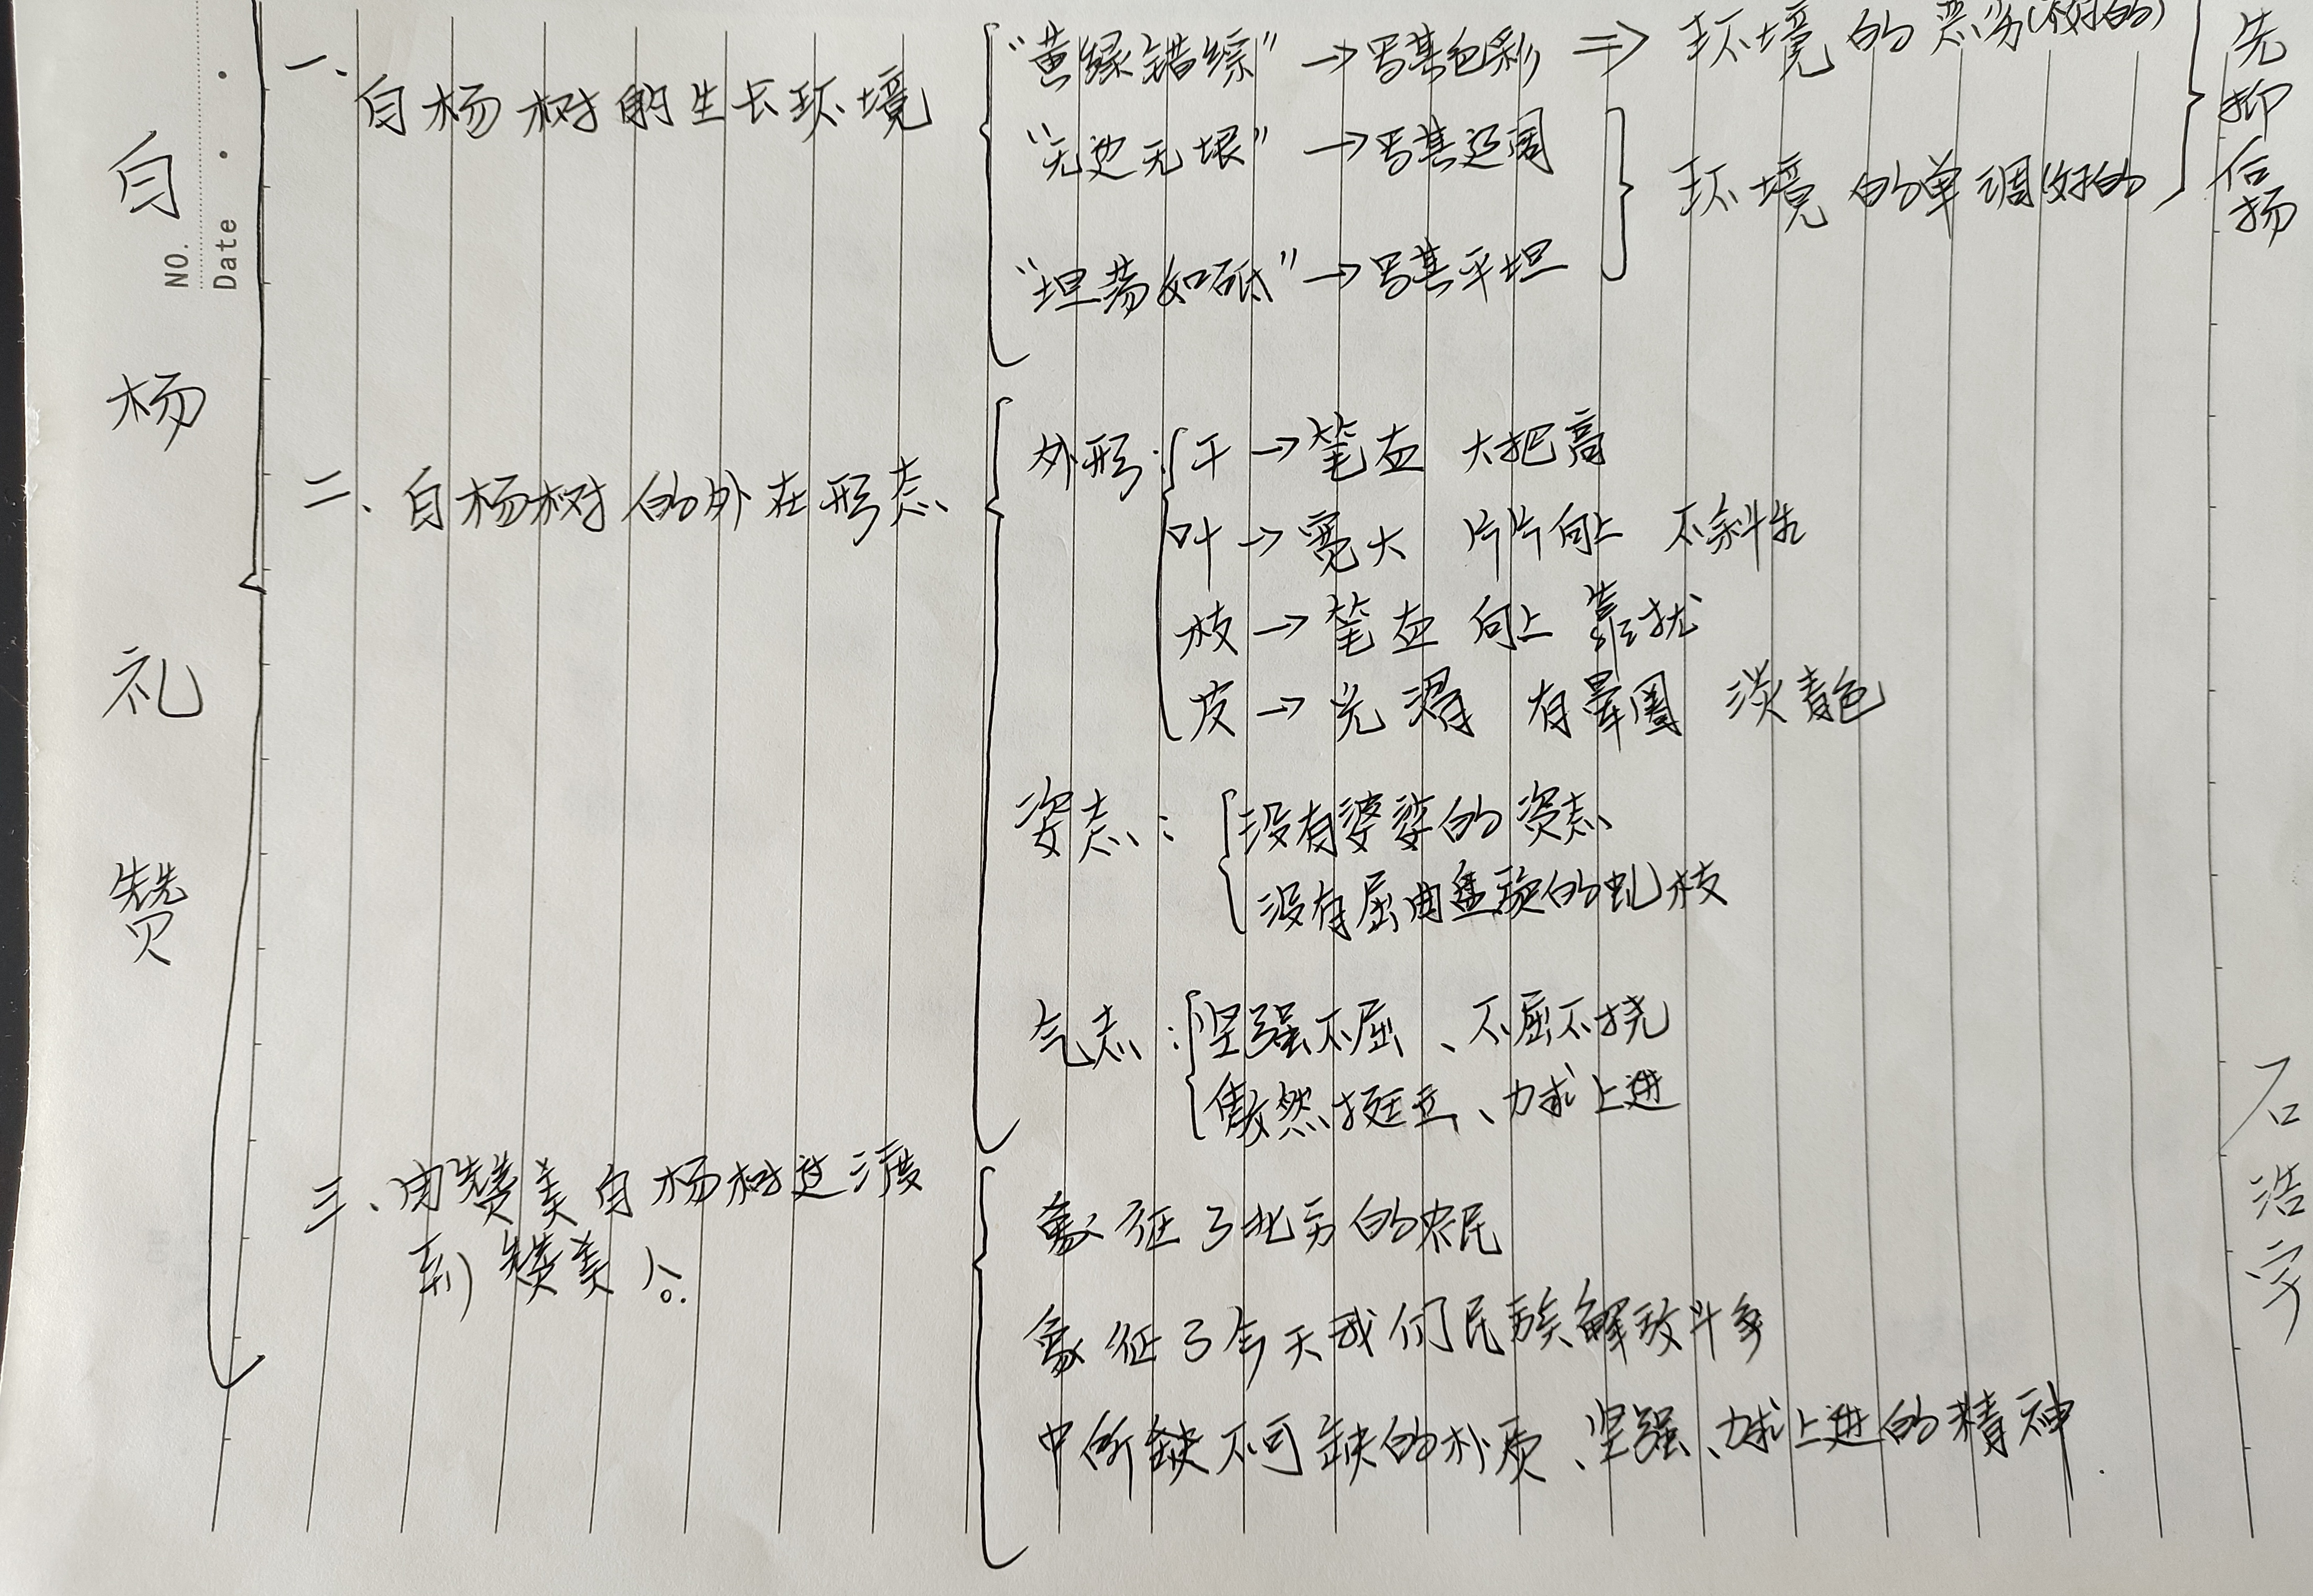 白杨礼赞
NO.
Date
一、
白杨树的生长环境
"黄绿错综" → 写其色彩 ⇒ 环境的恶劣(不好的)
"无边无垠" → 写其辽阔
环境的单调(好的
"坦荡如砥" → 写其平坦
先抑后扬
二、白杨树的外在形态
外形: 干 → 笔直 大把高
叶 → 宽大 片片向上 不斜生
枝 → 笔直 向上 靠拢
皮 → 光滑 有晕圈 淡青色
姿态: 没有婆娑的姿态
没有屈曲盘旋的虬枝
气态: 坚强不屈、不屈不挠
傲然挺立、力求上进
三、由赞美白杨树过渡
到赞美人。
象征了北方的农民
象征了今天我们民族解放斗争
中所缺不可缺的朴质、坚强、力求上进的精神.
石浩宇